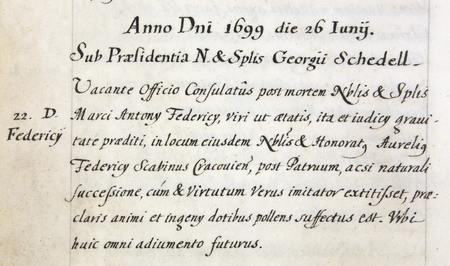 Anno Dni 1699 die 26 Iunij.
Sub Præsidentia N. & Splis Georgii Schedell
Vacante Officio Consulatûs post mortem Nblis & Splis
22. D. Federicÿ
Marci Antony Federicy, viri ut ætatis, ita et iudicy gravi-
tate præditi, in locum eiusdem Nblis & Honorat9 Aureli9
Federicy Scabinus Cracovien, post Patruum, ac si naturali
successione, cúm & Virtutum verus imitator extitisset, præ-
claris animi et ingeny dotibus pollens suffectus est. Vrbi
huic omni adiumento futurus.